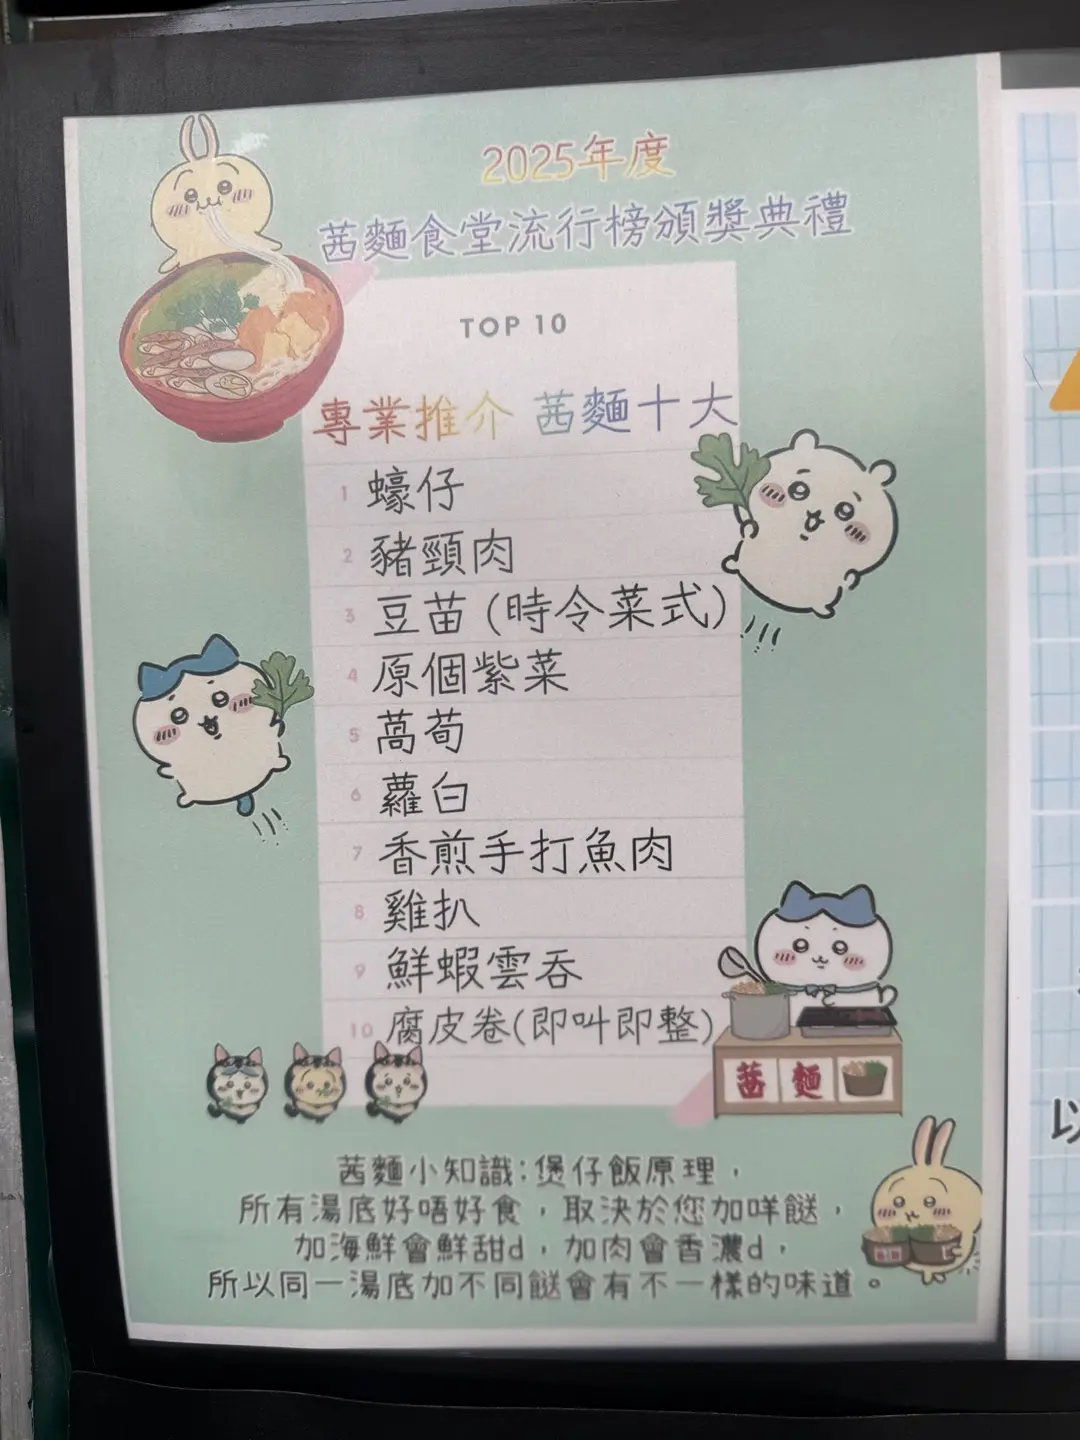 2025年度
茜麵食堂流行榜頒獎典禮
TOP 10
專業推介 茜麵十大
1 蠔仔
2 豬頸肉
3 豆苗 (時令菜式)
4 原個紫菜
5 萵荀
6 蘿白
7 香煎手打魚肉
8 雞扒
9 鮮蝦雲吞
10 腐皮卷(即叫即整)
茜麵
茜麵小知識：煲仔飯原理，
所有湯底好唔好食，取決於您加咩餸，
加海鮮會鮮甜d，加肉會香濃d，
所以同一湯底加不同餸會有不一樣的味道。
以